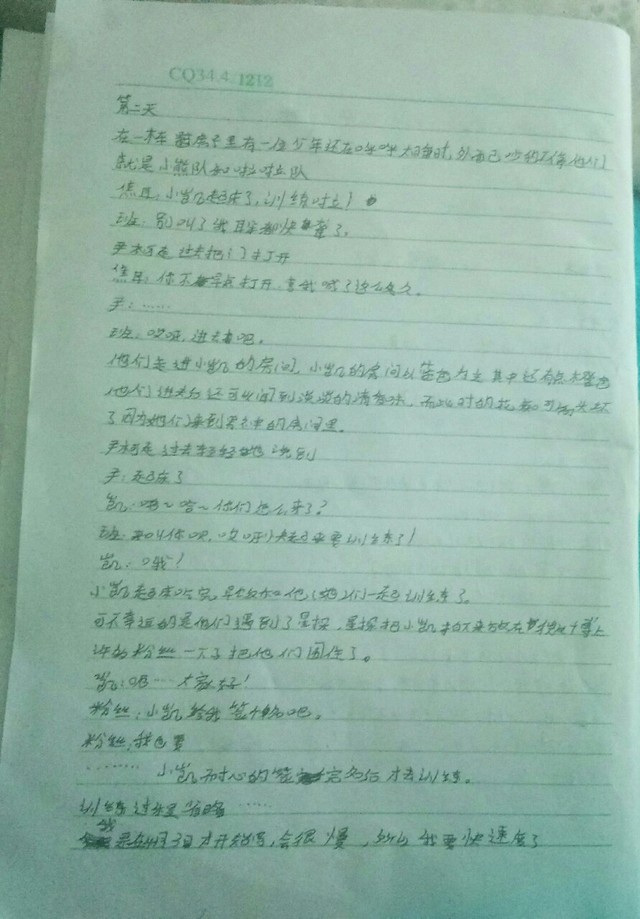 CQ34.4.1212
第二天
在一栋 数房子里有一位少年还在呼呼大睡时,外面已吵的不停他们
就是小熊队和啦啦队
焦：小凯起床了,训练时立
班：别叫了我耳朵都快聋了。
尹柯走过去把门打开
焦：你不早说打开,害我喊了这么久。
尹：……
班：哎呀,进去看吧。
他们走进小凯的房间,小凯的房间以蓝色为主其中还有点橙色
他们进去后还可以闻到淡淡的清香味,而此时的花
了因为她们来到男 的房间里。
尹柯走过去轻轻地说到
尹：起床了
凯：啊～哈～你们怎么来了？
班：来叫你吧,哎呀快起来要训练了！
凯：哦！
小凯起床吃完早饭和他(她)们一起去训练了。
可不幸运的是他们遇到了星探,星探把小凯拍下来放在
许多粉丝一下子把他们围住了。
凯：呃……大家好！
粉丝：小凯给我签个名吧。
粉丝：我也要
……… 小凯耐心的签完名后才去训练。
训练过程省略……
我是 才开始写,会很慢,所以我要快速度了